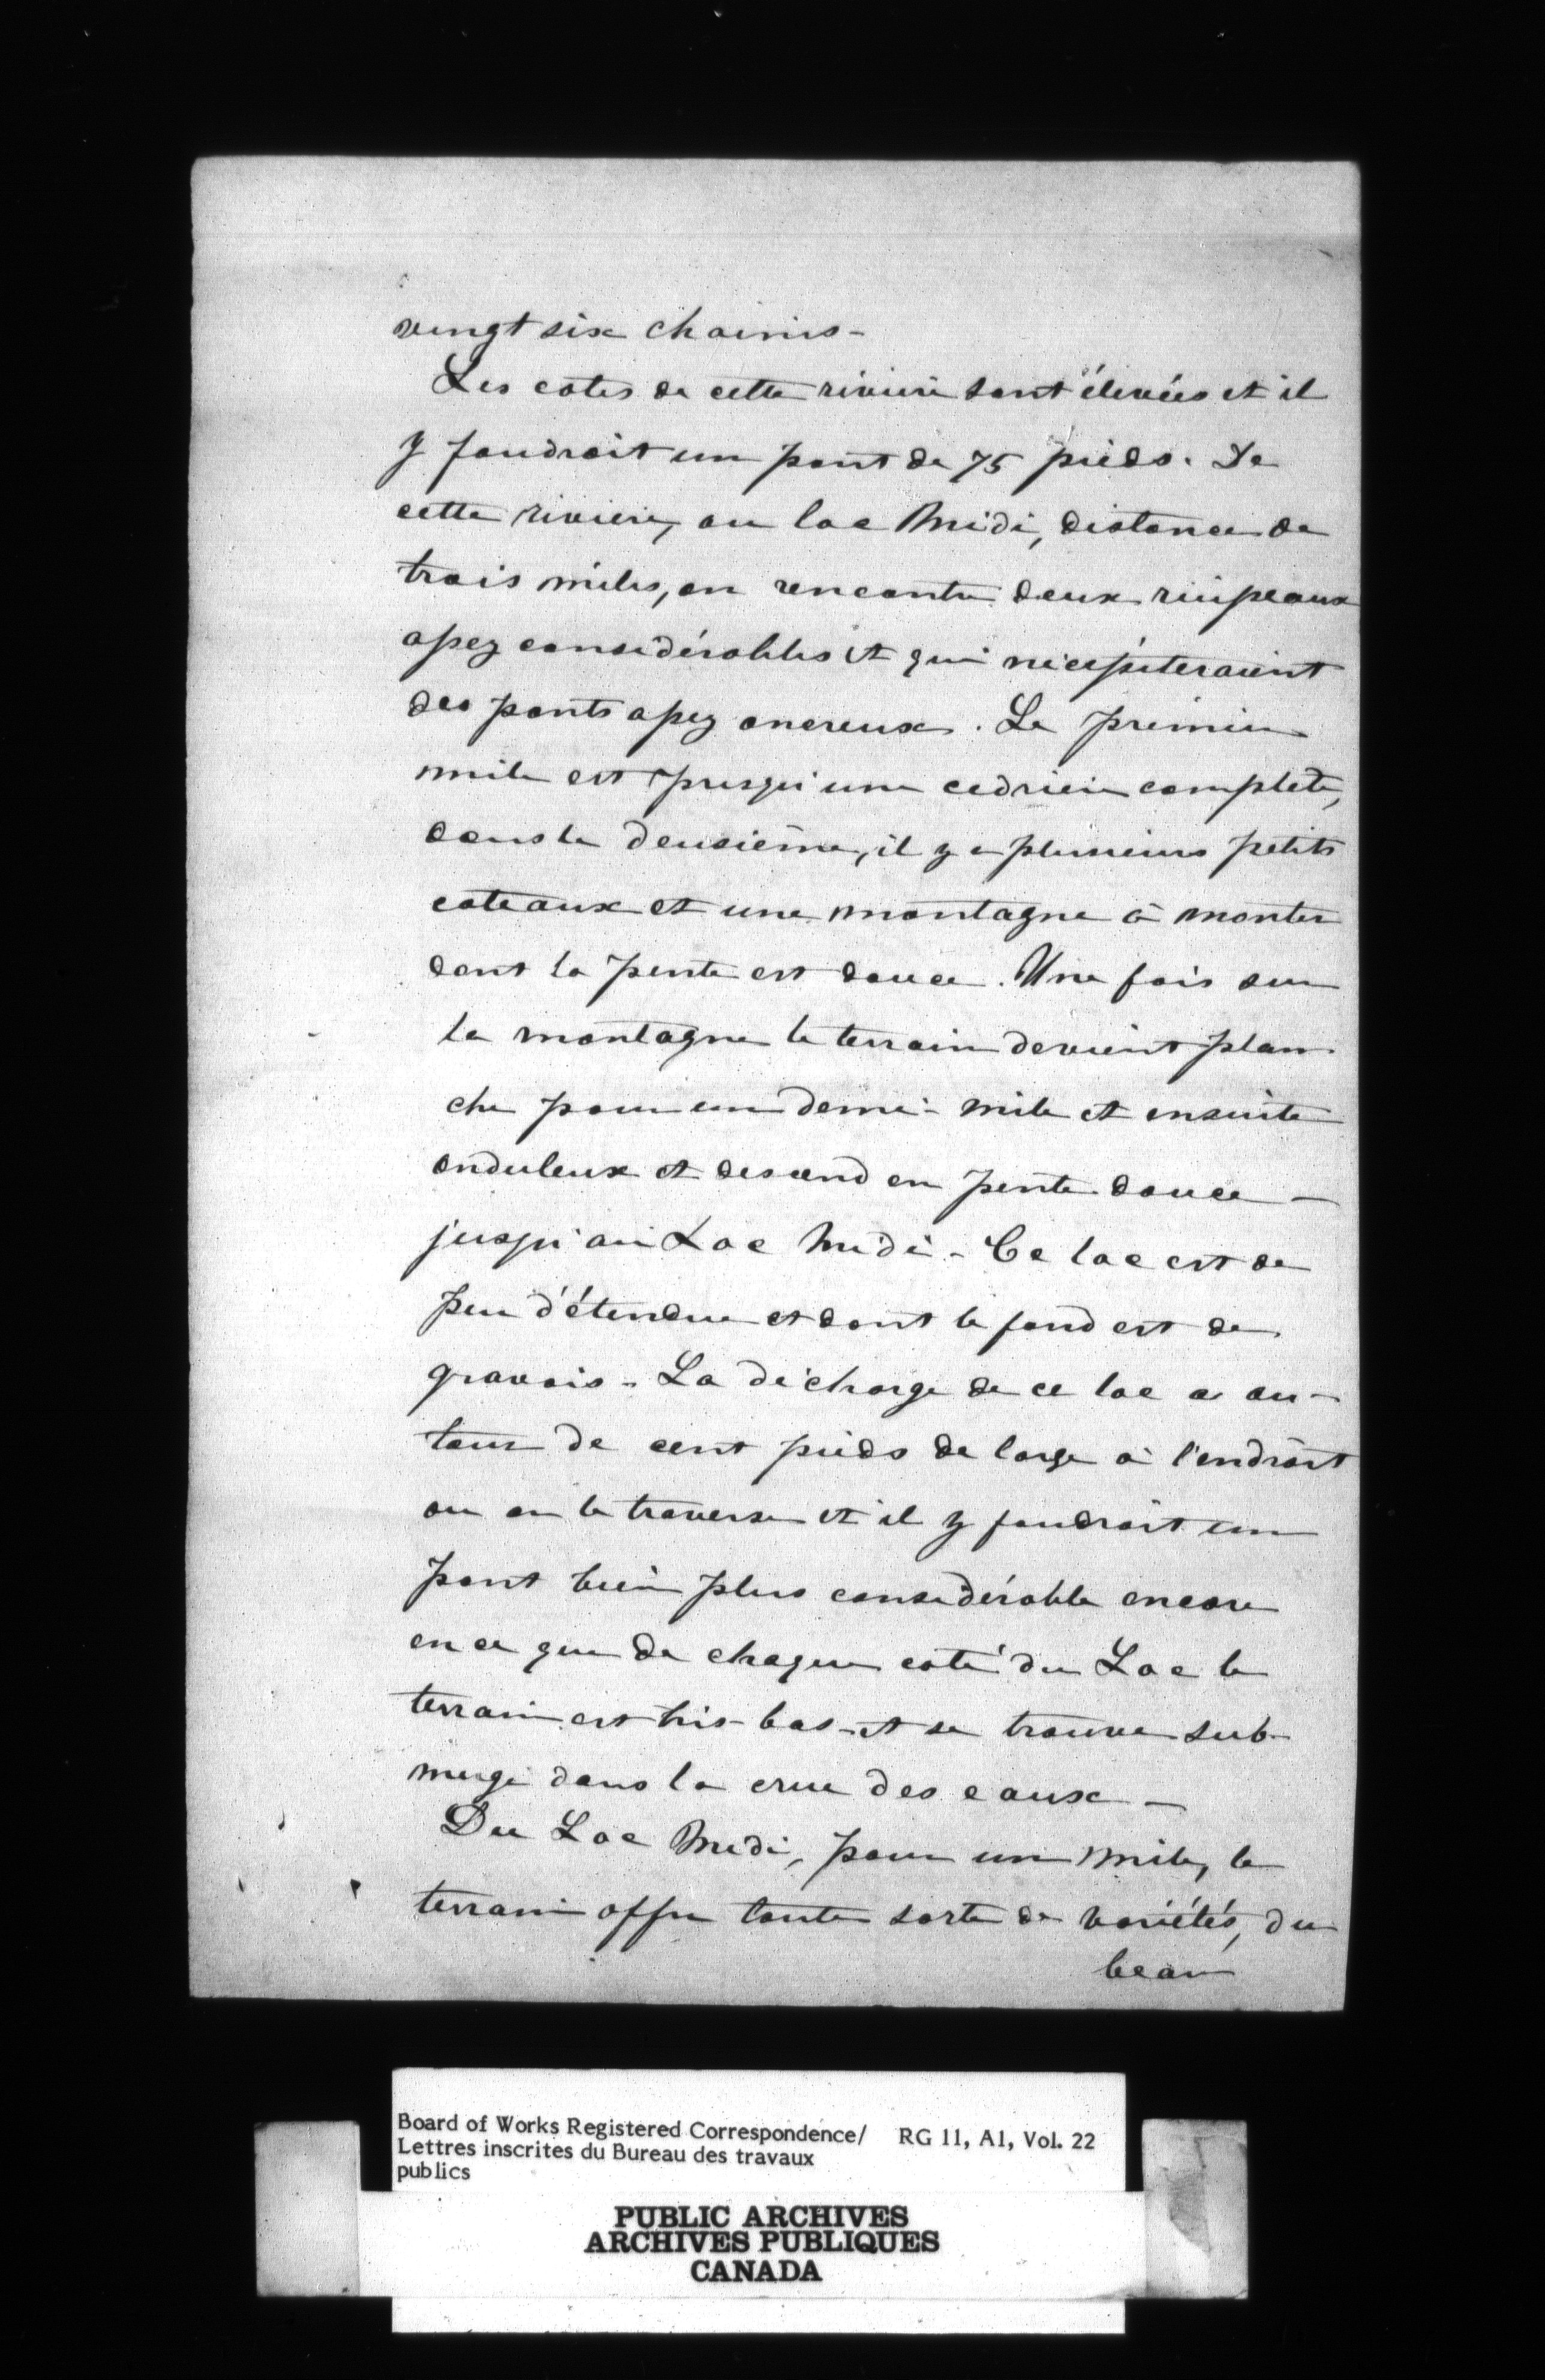 vingt six chaines -
Les cotes de cette riviere sont élevées et il
y faudrait un pont de 75 pieds. De
cette riviere, au lac Midi, distance de
trois miles, on rencontre deux ruisseaux
assez considérables et qui nécessiteraient
des ponts assez onereux. Le premier
mile est presqu'une cedriere complete,
dans le deusième, il y a plusieurs petits
coteaux et une montagne à monter
dont la pente est douce. Une fois sur
la montagne le terrain devient plan-
che pour un demi-mile et ensuite
onduleux et descend en pente douce -
jusqu'au Lac Midi - Ce lac est de
peu d'étendue et dont le fond est de
gravois - La décharge de ce lac a au-
tour de cent pieds de large à l'endroit
ou on le traverse et il y faudrait un
pont bien plus considérable encore
en ce que de chaque coté du Lac le
terrain est très-bas et se trouve sub-
mergé dans la crue des eaux -
Du Lac Midi, pour un mile, le
terrain offre toute sorte de variétés, du
beau
Board of Works Registered Correspondence/ RG 11, A1, Vol. 22
Lettres inscrites du Bureau des travaux
publics
PUBLIC ARCHIVES
ARCHIVES PUBLIQUES
CANADA